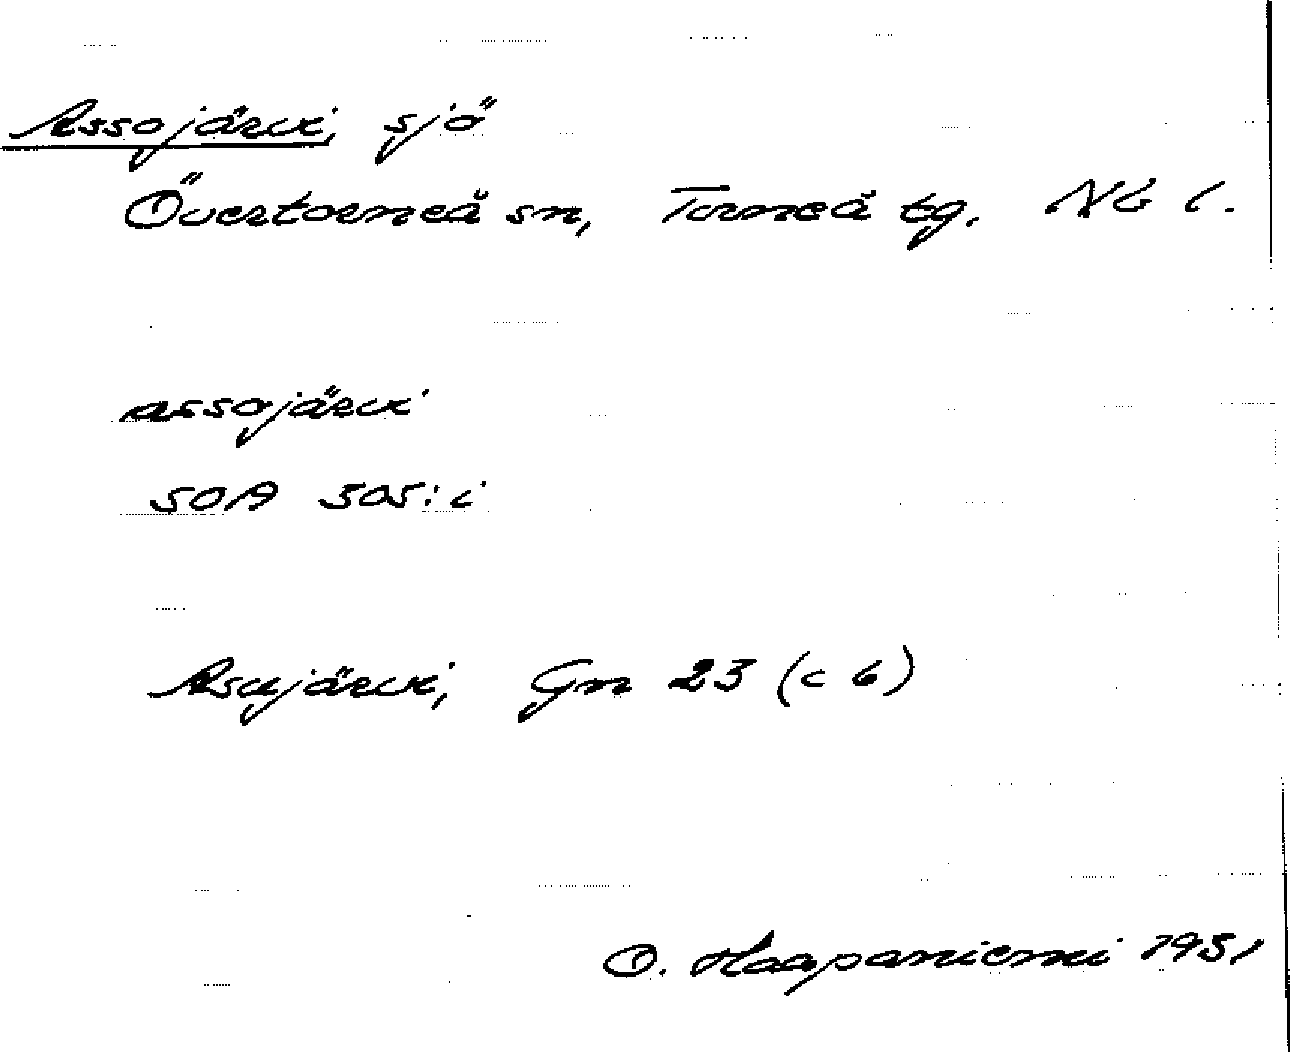 Assojärvi, sjö
Övertorneå sn, Torneå tg. Nb l.
assojärvi
SOA 305:i
Asujärvi, Gn 23 (c 6)
O. Haapaniemi 1951